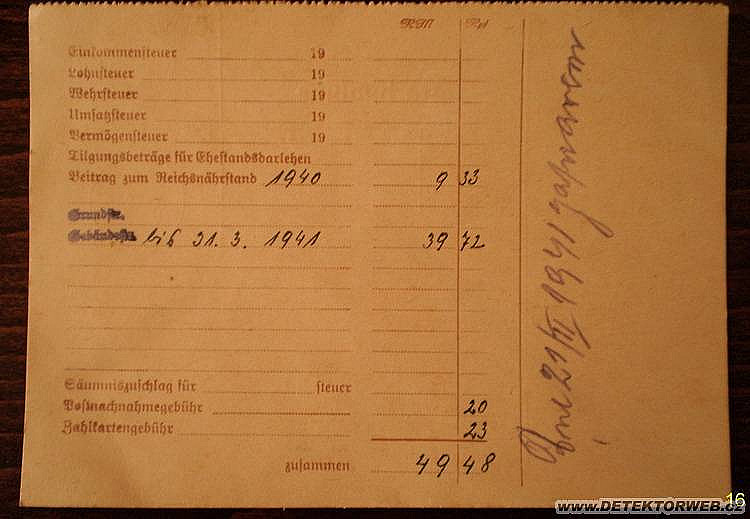 RM Rpf
Einkommensteuer 19
Lohnsteuer 19
Wehrsteuer 19
Umsatzsteuer 19
Vermögensteuer 19
Tilgungsbeträge für Ehestandsdarlehen
Beitrag zum Reichsnährstand 1940 9 33
Grundstr.
Gebäudestr. bis 31. 3. 1941 39 72
Säumniszuschlag für steuer
Postnachnahmegebühr 20
Zahlkartengebühr 23
zusammen 49 48
Dne 21/II 1941
16
www.DETEKTORWEB.cz